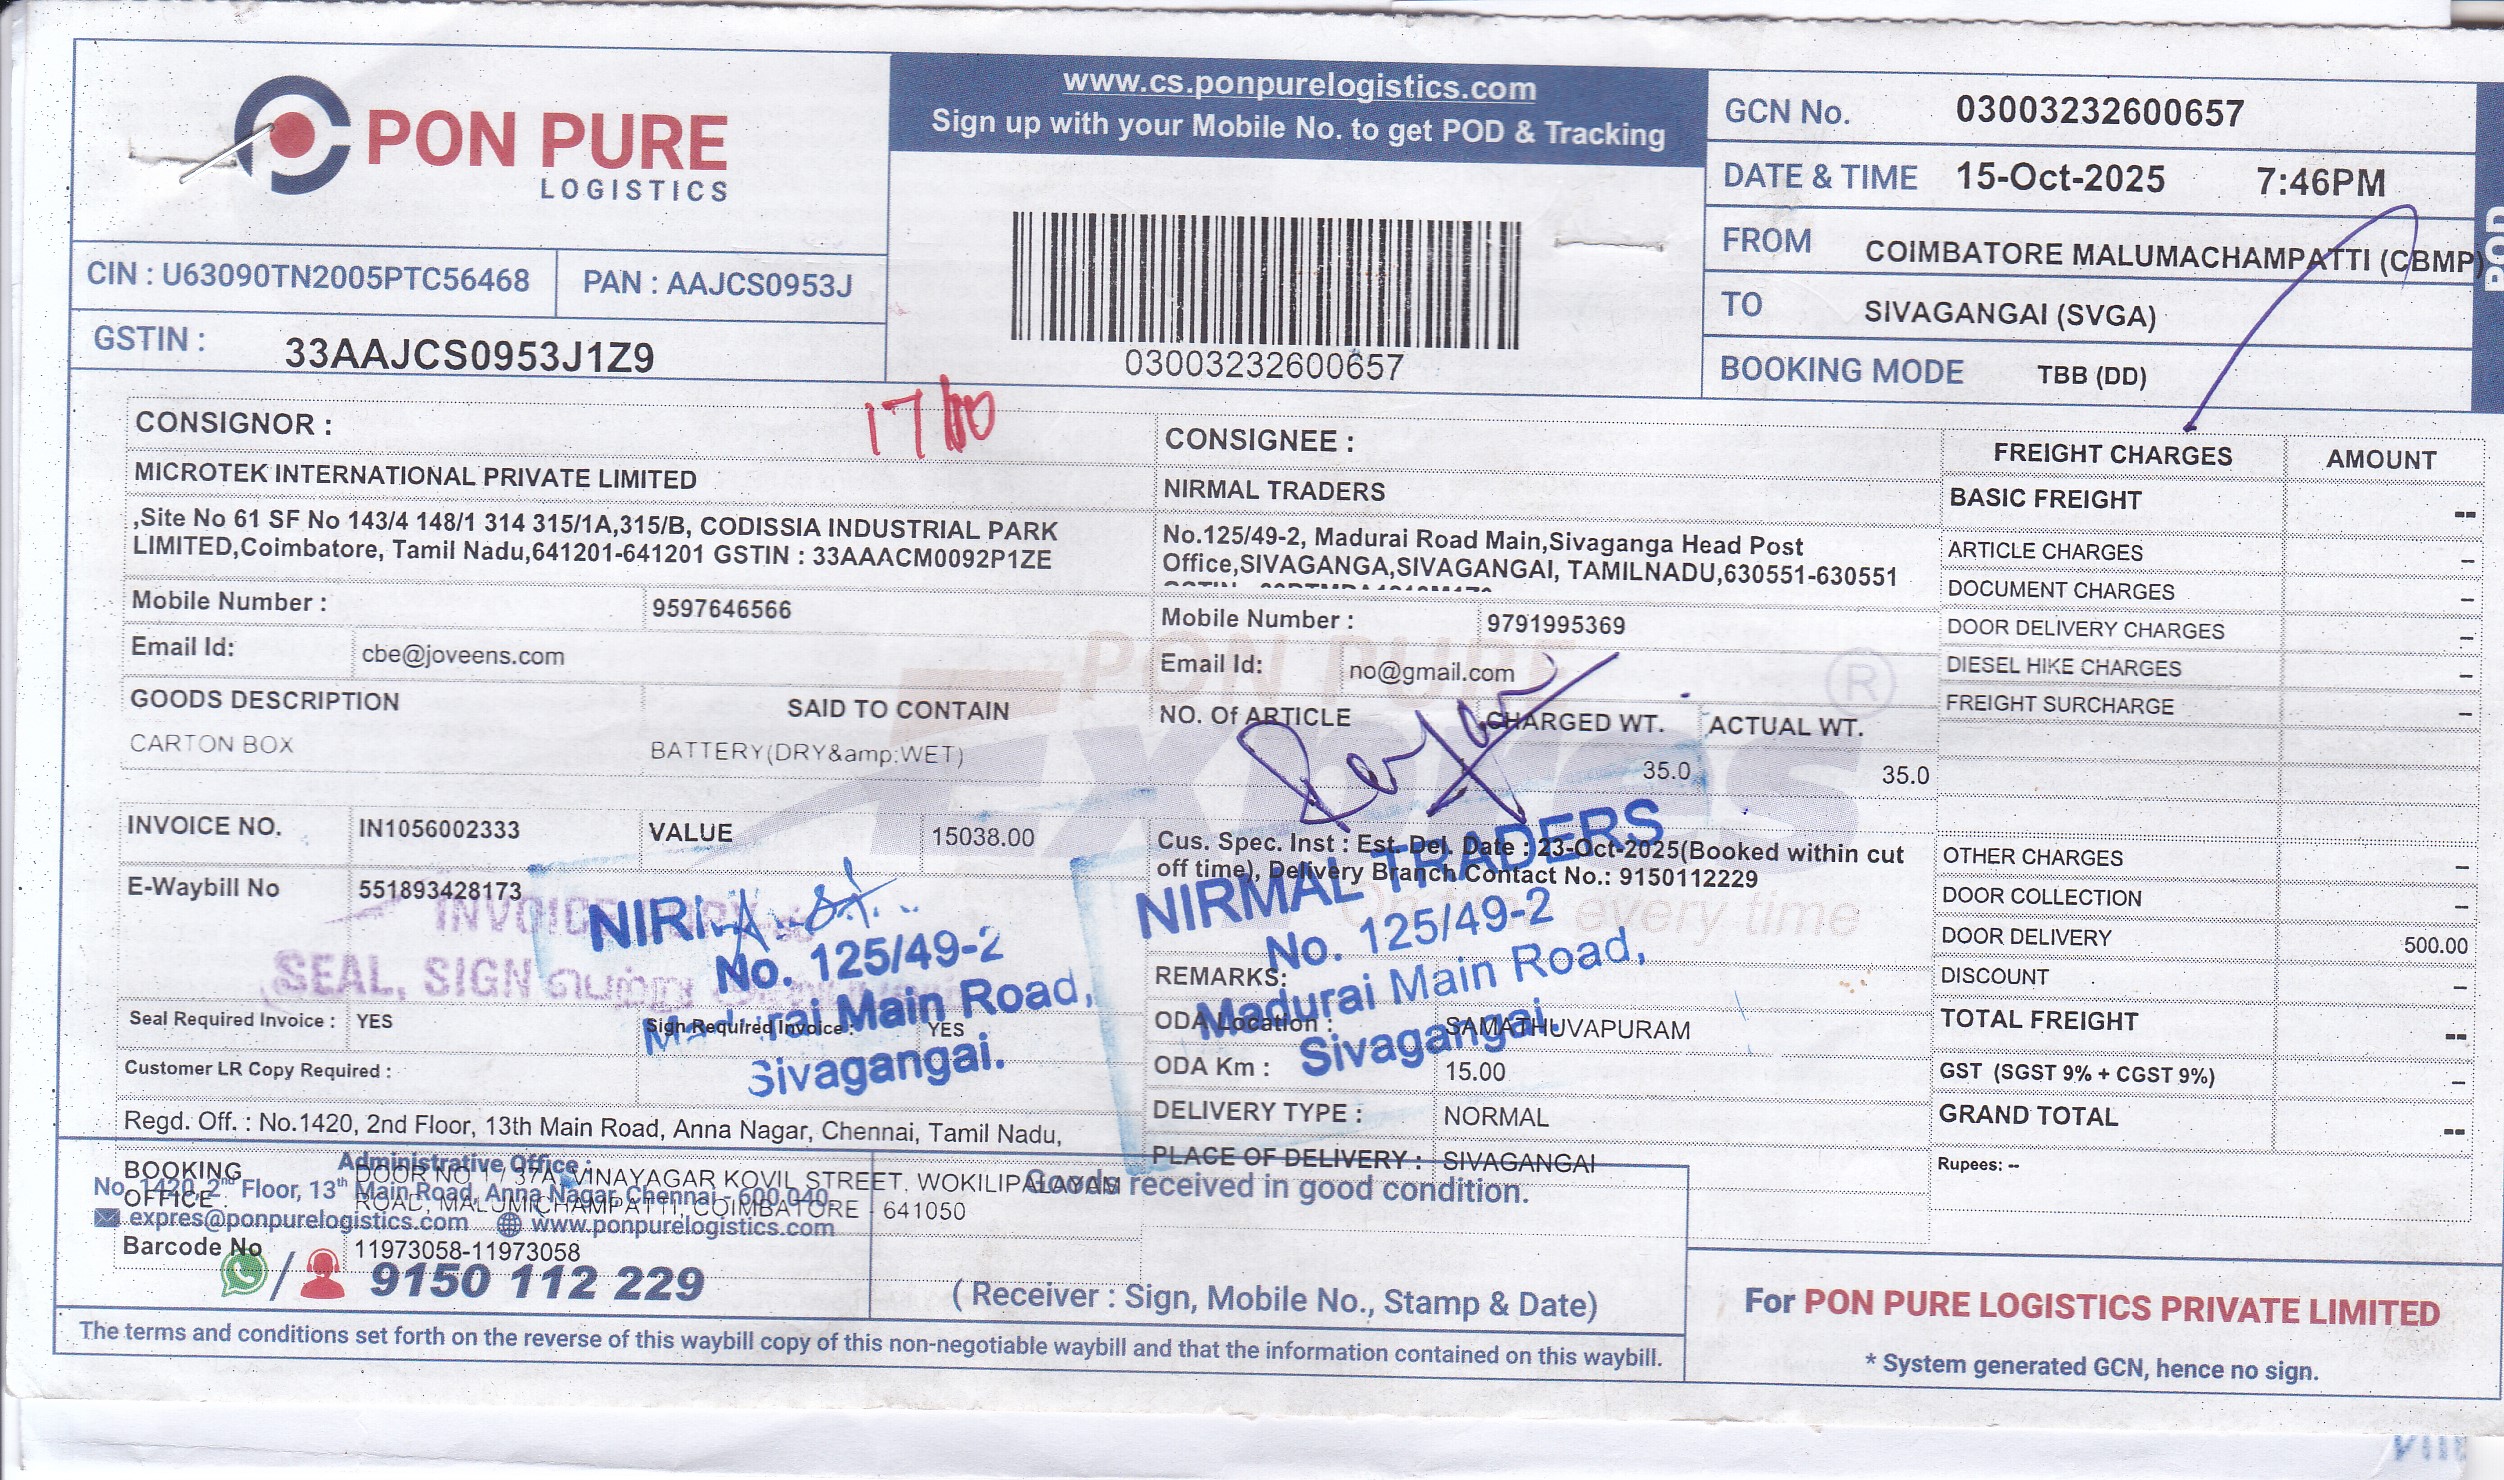 PON PURE
LOGISTICS
www.cs.ponpurelogistics.com
Sign up with your Mobile No. to get POD & Tracking
03003232600657
GCN No. 03003232600657
DATE & TIME 15-Oct-2025 7:46PM
FROM COIMBATORE MALUMACHAMPATTI (CBMP)
TO SIVAGANGAI (SVGA)
BOOKING MODE TBB (DD)
POD
CIN : U63090TN2005PTC56468 PAN : AAJCS0953J
GSTIN : 33AAJCS0953J1Z9
CONSIGNOR :
MICROTEK INTERNATIONAL PRIVATE LIMITED
,Site No 61 SF No 143/4 148/1 314 315/1A,315/B, CODISSIA INDUSTRIAL PARK
LIMITED,Coimbatore, Tamil Nadu,641201-641201 GSTIN : 33AAACM0092P1ZE
Mobile Number : 9597646566
Email Id: cbe@joveens.com
GOODS DESCRIPTION SAID TO CONTAIN
CARTON BOX BATTERY(DRY&amp;WET)
INVOICE NO. IN1056002333 VALUE 15038.00
E-Waybill No 551893428173
SEAL, SIGN
No. 125/49-2
Main Road,
Sivagangai.
Seal Required Invoice : YES Sign Required Invoice : YES
Customer LR Copy Required :
Regd. Off. : No.1420, 2nd Floor, 13th Main Road, Anna Nagar, Chennai, Tamil Nadu,
CONSIGNEE :
NIRMAL TRADERS
No.125/49-2, Madurai Road Main,Sivaganga Head Post
Office,SIVAGANGA,SIVAGANGAI, TAMILNADU,630551-630551
Mobile Number : 9791995369
Email Id: no@gmail.com
NO. Of ARTICLE CHARGED WT. ACTUAL WT.
35.0 35.0
PON PURE
Expres
®
On time every time
Cus. Spec. Inst : Est. Del. Date : 23-Oct-2025(Booked within cut
off time), Delivery Branch Contact No.: 9150112229
NIRMAL TRADERS
No. 125/49-2
Madurai Main Road,
Sivagangai.
REMARKS:
ODA Location : SAMATHUVAPURAM
ODA Km : 15.00
DELIVERY TYPE : NORMAL
PLACE OF DELIVERY : SIVAGANGAI
FREIGHT CHARGES AMOUNT
BASIC FREIGHT --
ARTICLE CHARGES –
DOCUMENT CHARGES –
DOOR DELIVERY CHARGES –
DIESEL HIKE CHARGES –
FREIGHT SURCHARGE –
OTHER CHARGES –
DOOR COLLECTION –
DOOR DELIVERY 500.00
DISCOUNT –
TOTAL FREIGHT --
GST (SGST 9% + CGST 9%) –
GRAND TOTAL --
Rupees: --
BOOKING OFFICE : DOOR NO 1 / 37A, VINAYAGAR KOVIL STREET, WOKILIPALAYAM
ROAD, MALUMICHAMPATTI, COIMBATORE - 641050
Administrative Office :
No. 1420, 2nd Floor, 13th Main Road, Anna Nagar, Chennai - 600 040
expres@ponpurelogistics.com www.ponpurelogistics.com
Barcode No 11973058-11973058
9150 112 229
Goods received in good condition.
( Receiver : Sign, Mobile No., Stamp & Date)
The terms and conditions set forth on the reverse of this waybill copy of this non-negotiable waybill and that the information contained on this waybill.
For PON PURE LOGISTICS PRIVATE LIMITED
* System generated GCN, hence no sign.